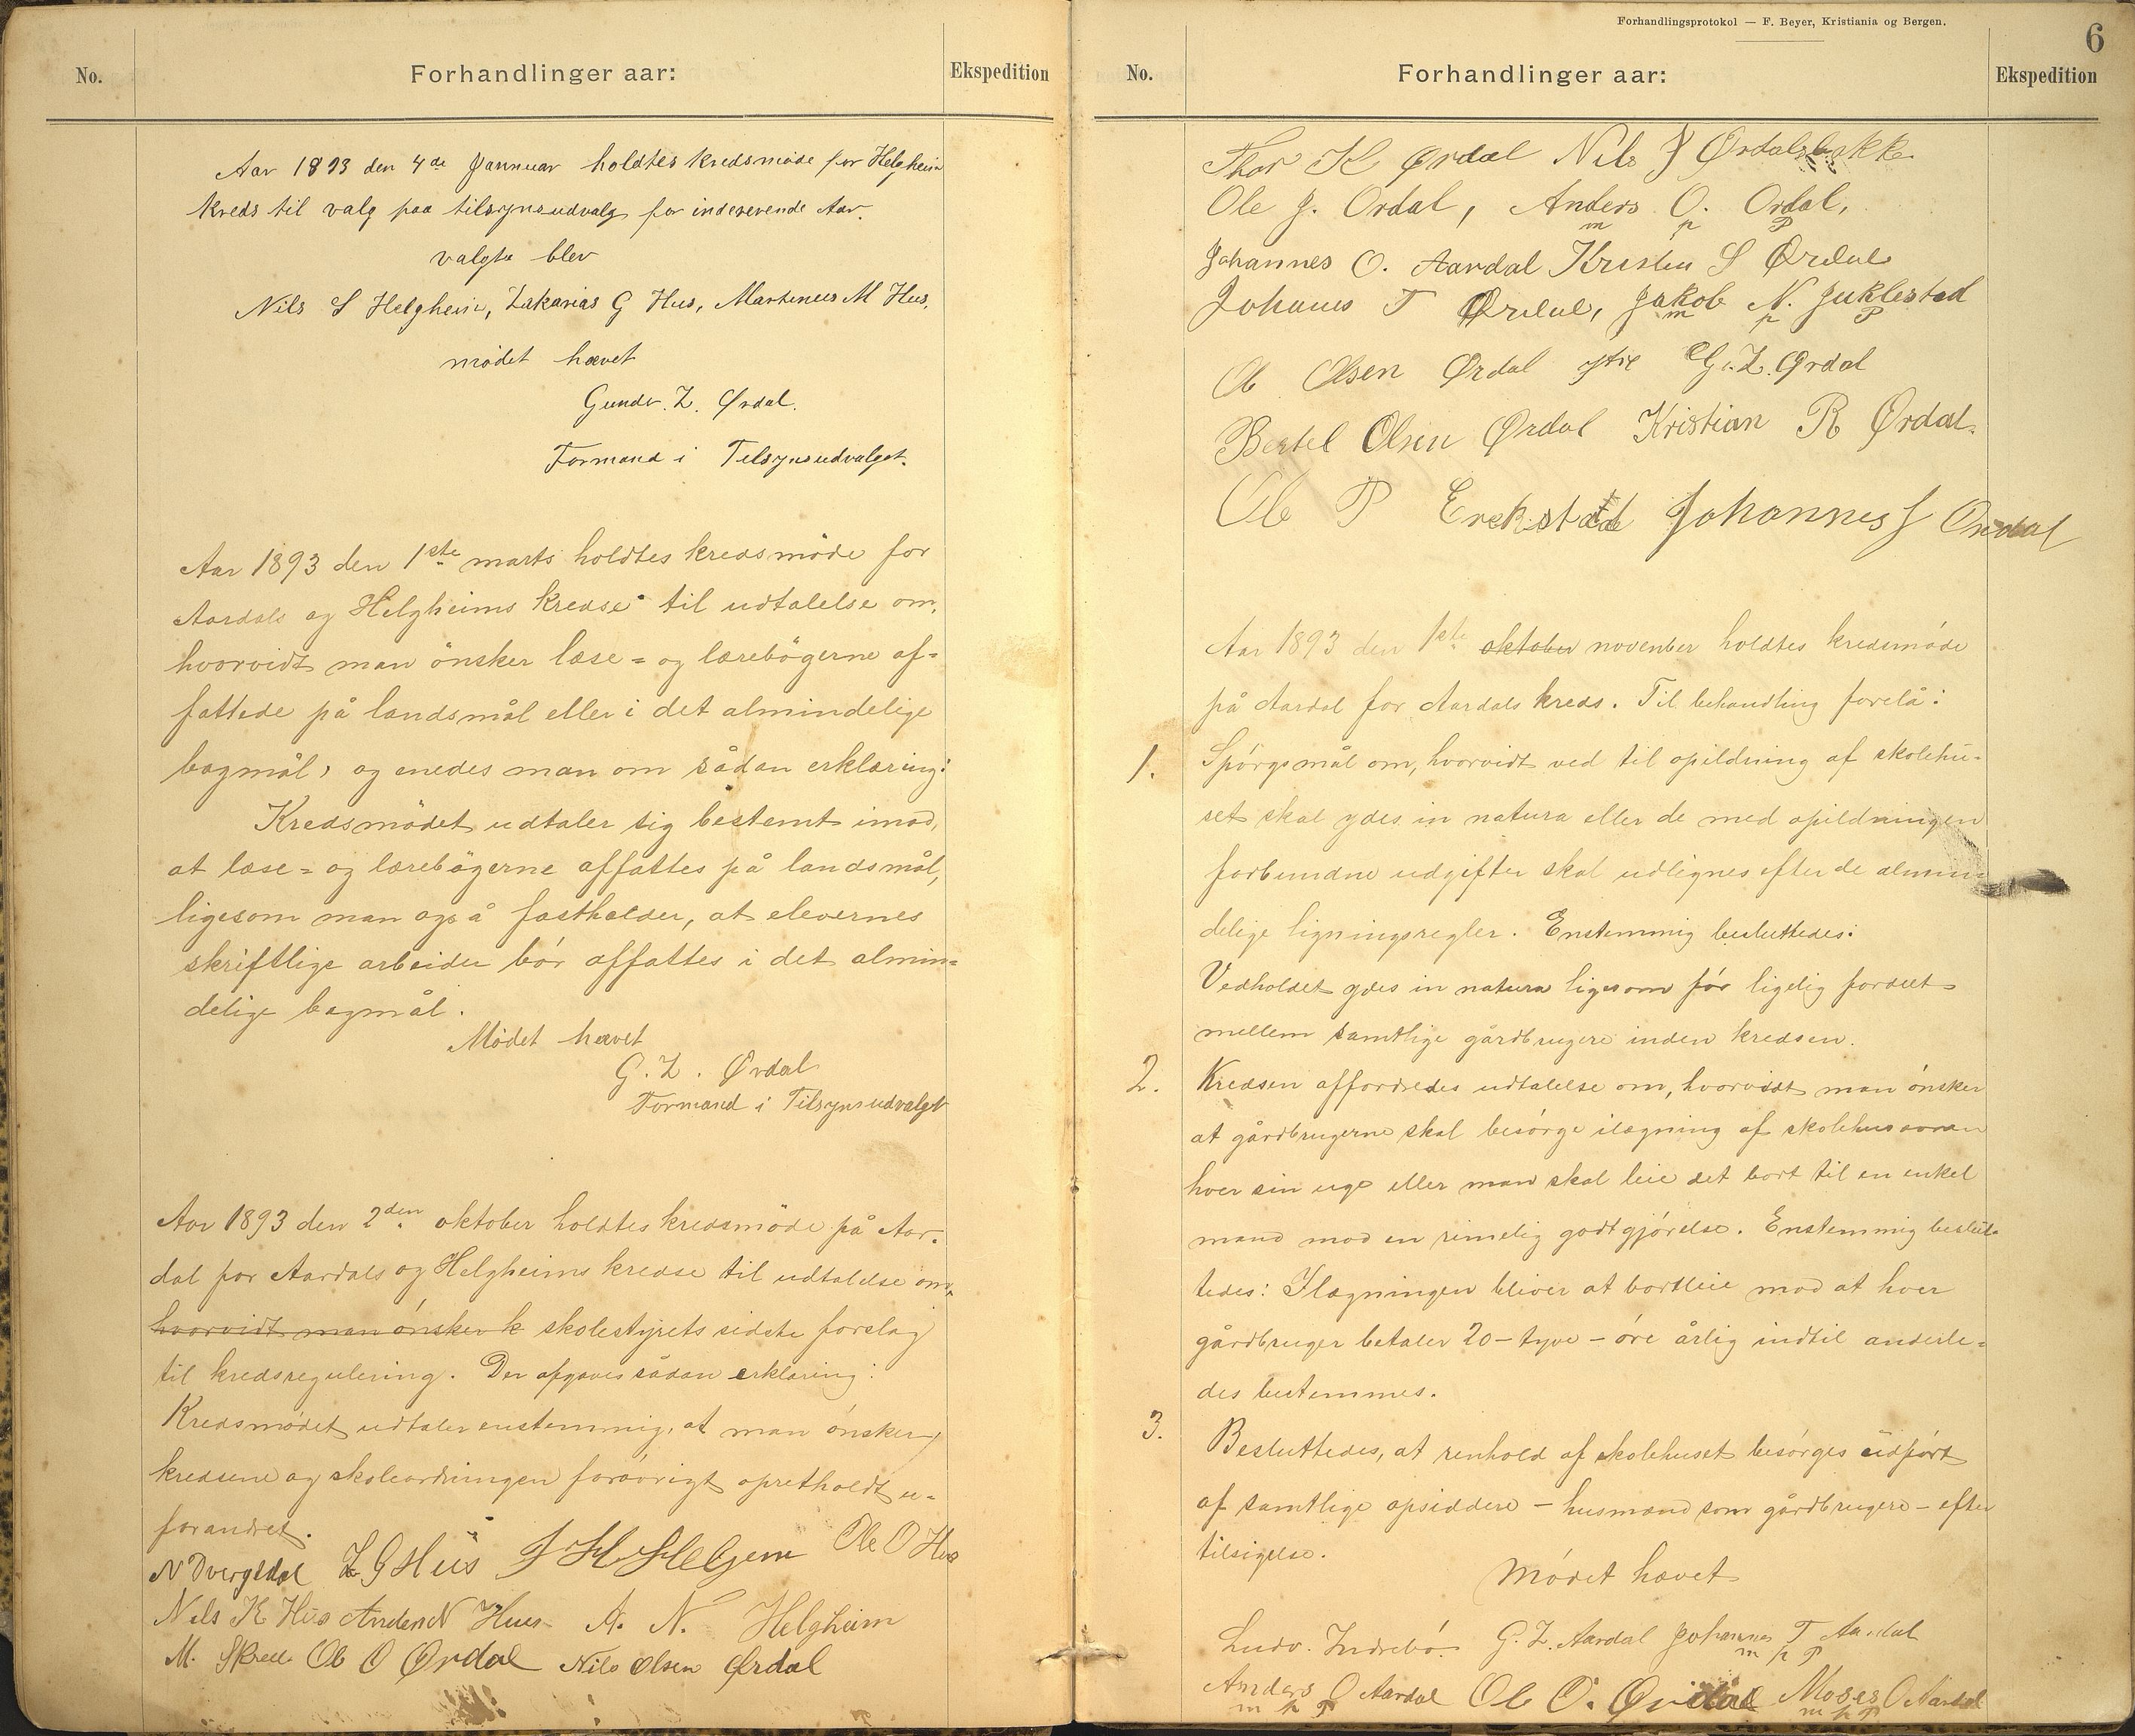 No.
Forhandlinger aar:
Ekspedition
Aar 1893 den 4de Jannuar holdtes kredsmøde for Helgheim
kreds til valg paa tilsynsudvalg for indeverende Aar.
valgte blev
Nils S Helgheim, Zakarias G Hus, Martinus M Hus.
mødet hævet
Gunder. Z. Ørdal.
Formand i Tilsynsudvalget.
Aar 1893 den 1ste marts holdtes kredsmöde for
Aardals og Helgheims kredse til udtalelse om,
hvorvidt man önsker læse= og lærebögerne af=
fattede på landsmål eller i det almindelige
bogmål, og enedes man om sådan erklæring:
Kredsmödet udtaler sig bestemt imod,
at læse= og lærebögerne affattes på landsmål,
ligesom man også fastholder, at elevernes
skriftlige arbeider bör affattes i det almin=
delige bogmål.
Mødet hævet
G. Z. Ørdal
Formand i Tilsynsudvalget
Aar 1893 den 2den oktober holdtes kredsmöde på Aar=
dal for Aardals og Helgheims kredse til udtalelse om,
hvorvidt man ónsker k skolestyrets sidste forslag
til kredsregulering. Der afgaves sådan erklæring:
Kredsmödet udtaler enstemmig, at man ónsker
kredsene og skoleordningen forövrigt opretholdt u=
forandret.
N Dvergsdal Z G Hus Ole O Hus
Nils K Hus Anders N Hus A. N. Helgheim
M. Skrede Ole O Ørdal Nils Olsen Ørdal
Forhandlingsprotokol — F. Beyer, Kristiania og Bergen.
6
No.
Forhandlinger aar:
Ekspedition
Thor K Ørdal Nils J Ørdalsbakke
Ole J. Ordal, Anders O. Ordal,
m p P
Johannes O. Aardal Kristen S Ørdal
Johannes T Ørdal, Jakob N. Juklestad
m p P
Ole Olsen Ørdal G. Z. Ørdal
Bertel Olsen Ørdal Kristian R Ørdal.
Ole P Johannes J Ørdal
Aar 1893 den 1ste oktober november holdtes kredsmóde
på Aardal for Aardals kreds. Til behandling forelå:
1. Spórgsmål om, hvorvidt ved til opildning af skolehu=
set skal ydes in natura eller de med opildningen
forbundne udgifter skal udlignes efter de almin=
delige ligningsregler. Enstemmig besluttedes:
Vedholdet ydes in natura ligesom fór ligelig fordelt
mellem samtlige gårdbrugere inden kredsen.
2. Kredsen affordredes udtalelse om, hvorvidt man ónsker
at gårdbrugerne skal besórge ilægning af skolehusovnen
hver sin uge eller man skal leie det bort til en enkel
mand mod en rimelig godtgjórelse. Enstemmig beslut=
tedes: Ilægningen bliver at bortleie mod at hver
gårdbruger betaler 20 – tyve – óre årlig indtil anderle=
des bestemmes.
3. Besluttedes, at renhold af skolehuset besórges udfórt
af samtlige opsiddere – husmænd som gårdbrugere – efter
tilsigelse.
Módet hævet
Ludv. Indrebó. G. Z. Aardal Johannes T Aardal
m p P
Anders O Aardal Ole O. Ørdal Moses O Aardal
m p P m p P